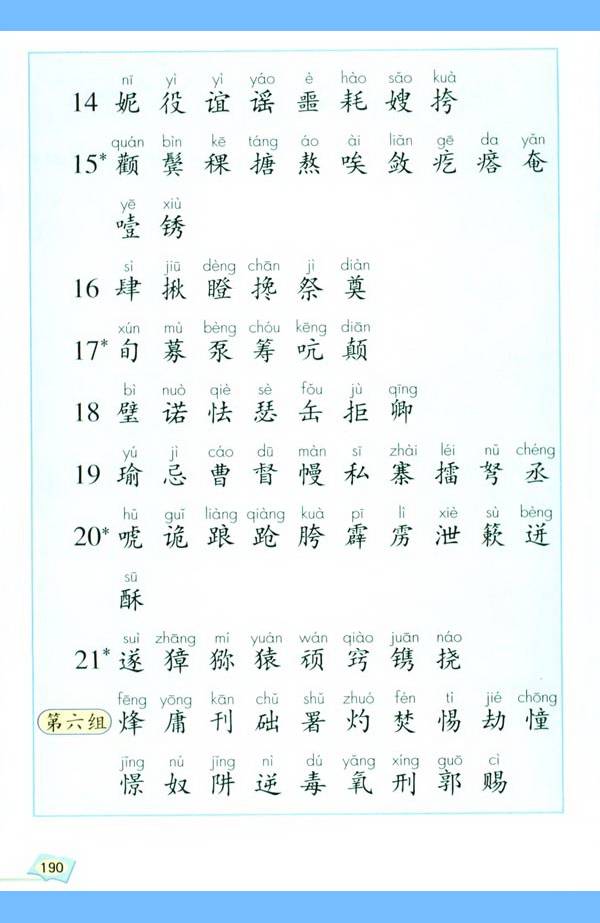 nī yì yì yáo è hào sǎo kuà
14 妮 役 谊 谣 噩 耗 嫂 挎
quán bìn kē táng áo ài liǎn gē da yǎn
15* 颧 鬓 稞 搪 熬 唉 敛 疙 瘩 奄
yē xiù
噎 锈
sì jiū dèng chān jì diàn
16 肆 揪 瞪 搀 祭 奠
xún mù bèng chóu kēng diān
17* 旬 募 泵 筹 吭 颠
bì nuò qiè sè fǒu jù qīng
18 璧 诺 怯 瑟 缶 拒 卿
yú jì cáo dū màn sī zhài léi nǔ chéng
19 瑜 忌 曹 督 幔 私 寨 擂 弩 丞
hǔ guǐ liàng qiàng kuà pī lì xiè sù bèng
20* 唬 诡 踉 跄 胯 霹 雳 泄 簌 迸
sū
酥
suì zhāng mí yuán wán qiào juān náo
21* 遂 獐 猕 猿 顽 窍 镌 挠
fēng yōng kān chǔ shǔ zhuó fén tì jié chōng
第六组 烽 庸 刊 础 署 灼 焚 惕 劫 憧
jǐng nú jǐng nì dú yǎng xíng guō cì
憬 奴 阱 逆 毒 氧 刑 郭 赐
190